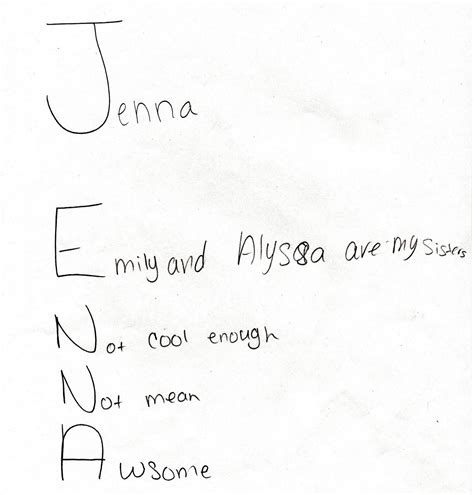 Jenna
Emily and Alyssa are my Sisters
Not cool enough
Not mean
Awsome